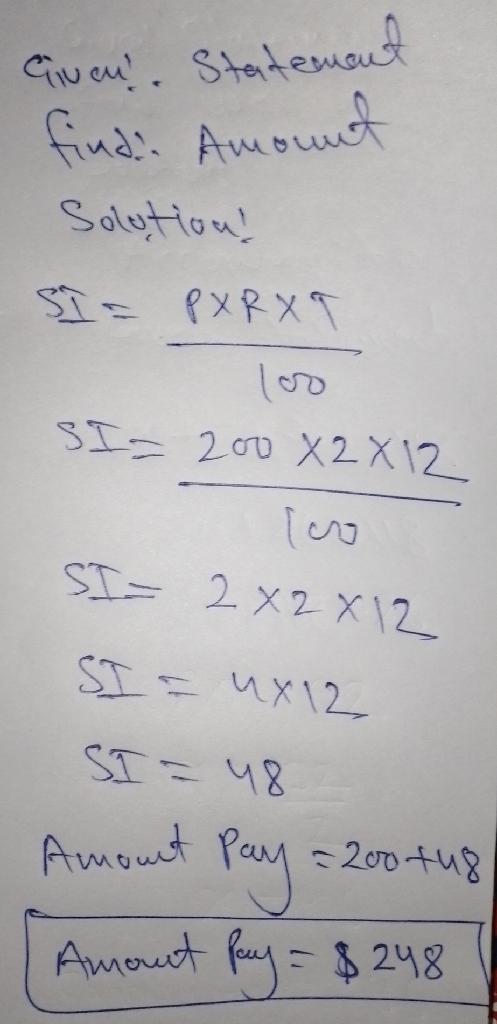 Given:. Statement
find:. Amount
Solution!
SI = PXRXT
100
SI = 200 X2X12
100
SI = 2 X2 X12
SI = 4X12
SI = 48
Amount Pay = 200+48
Amount Pay = $ 248